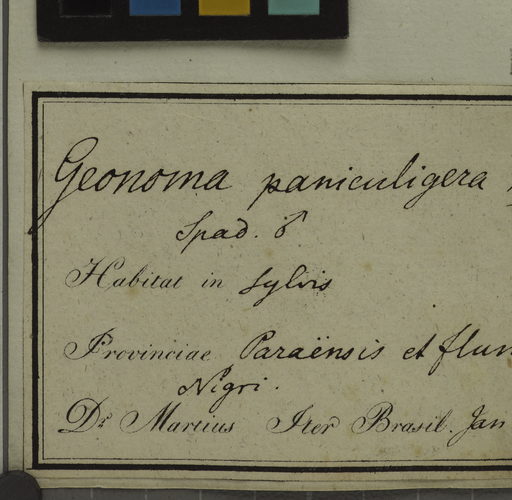 Geonoma paniculigera
Spad. ♂
Habitat in sylvis
Provinciae Paraënsis et flum
Nigri.
Dr. Martius Iter Brasil. Jan